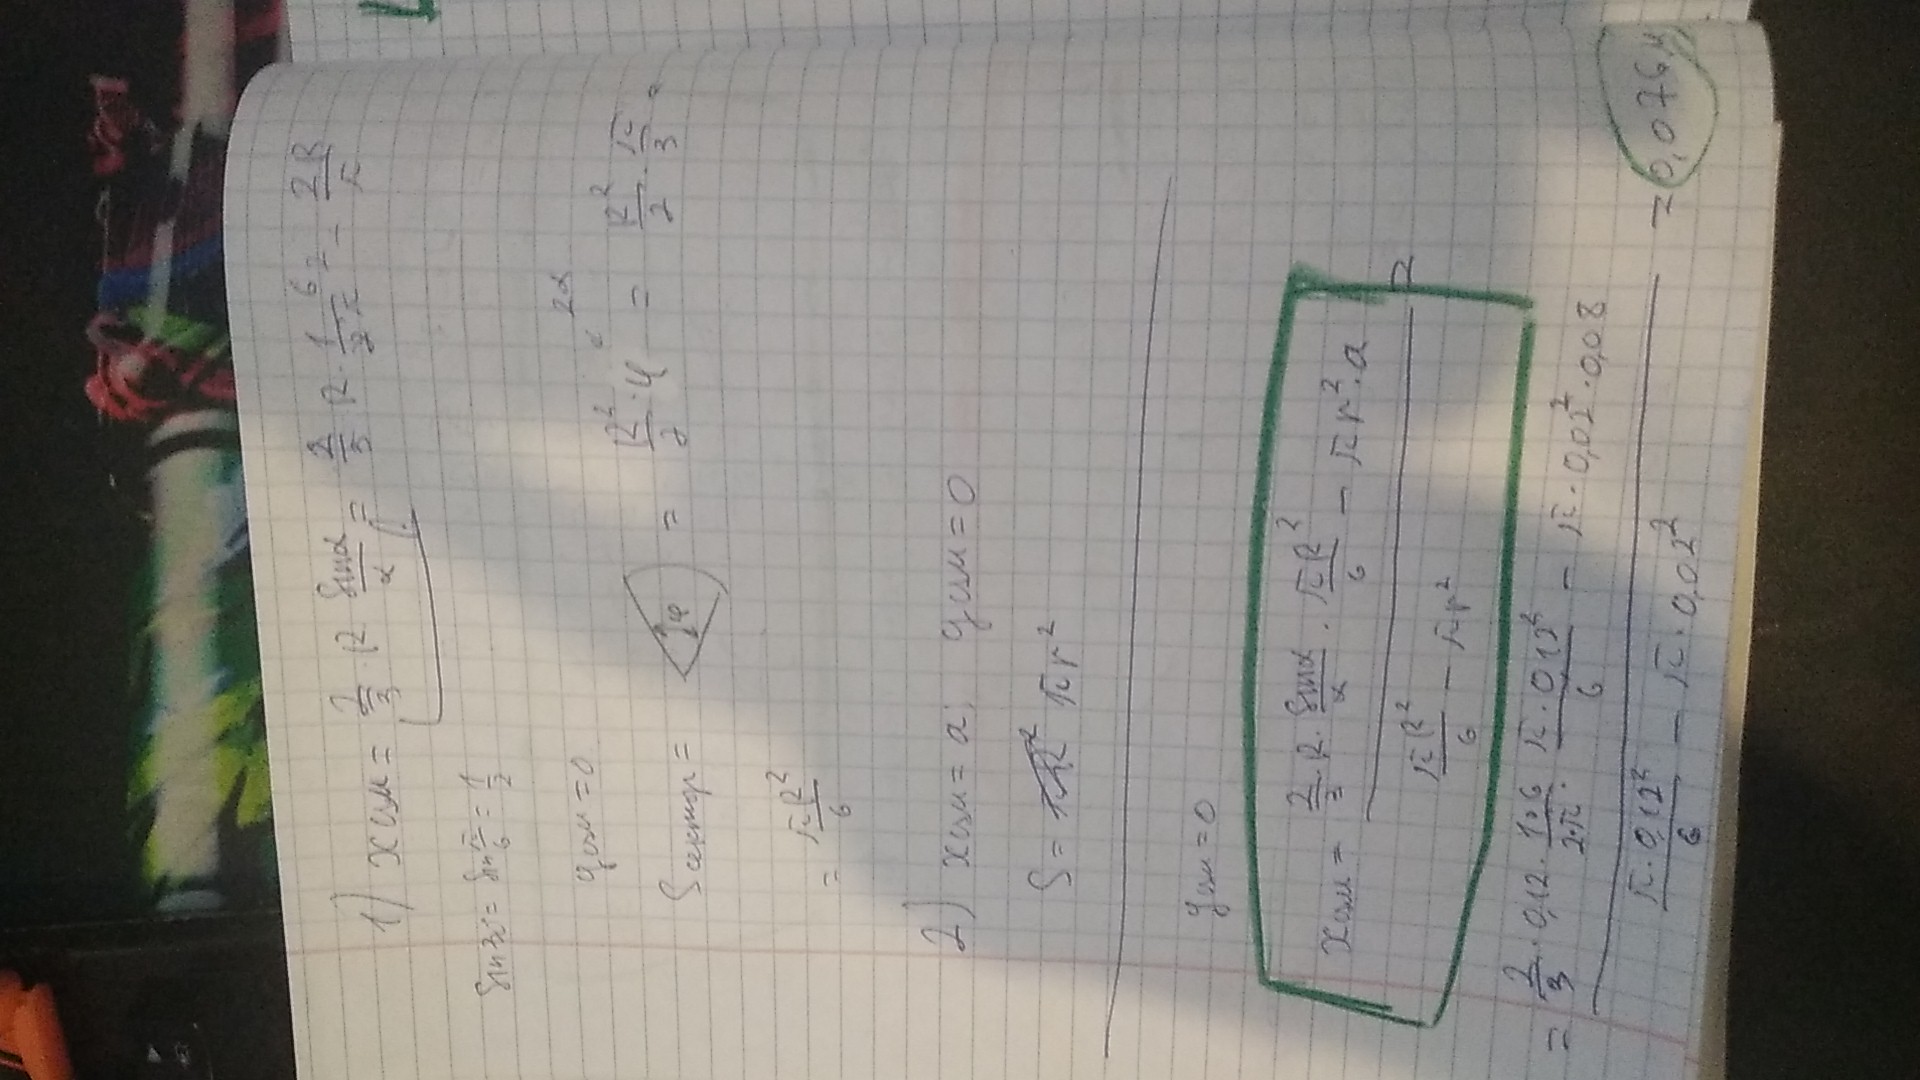 1) xцм = 2/3 · R · sinα/α = 2/3 R · 1/2 6/π = 2R/π
sin30 = sin π/6 = 1/2
yцм = 0
Sсектор = φ = R²/2 · φ 2α = R²/2 · π/3 =
= πR²/6
2) xцм = a; yцм = 0
S = πr²
yцм = 0
xцм = (2/3 · R · sinα/α · πR²/6 − πr² · a) / (πR²/6 − πr²) =
= (2/3 · 0,12 · 1·6/2·π · π·0,12²/6 − π · 0,02² · 0,08) / (π·0,12²/6 − π · 0,02²) = 0,076м